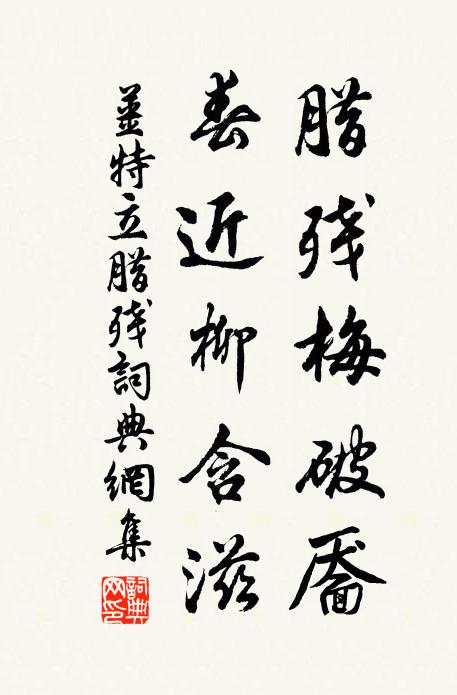 腊残梅破靥
春近柳含滋
薑特立腊残詞典網集
詞典网印